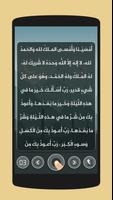 أَمْسَيْنَا وَأَمْسَى المَلَكُ لله وَالحَمدُ
لله، لا إله إلاَّ اللَّهُ وَحدَهُ لَا شَرِيكَ لَهُ،
لَهُ المُلكُ وَلَهُ الحَمْدُ، وَهُوَ عَلَى كُلِّ
شَيءٍ قدير، رَبِّ أسْأَلُكَ خَيرَ مَا فِي
هَذِهِ اللَّيْلَةِ وَخَيرَ مَا بَعْدَهَا، وَأَعُوذُ
بِكَ مِنْ شَرِّ مَا فِي هَذِهِ اللَّيْلَةِ وَشَرِّ
مَا بَعْدَهَا، رَبِّ أَعُوذُ بِكَ مِنَ الكَسَلِ
وَسُوءِ الكِبَرِ ، رَبِّ أَعُوذُ بِكَ مِن
03